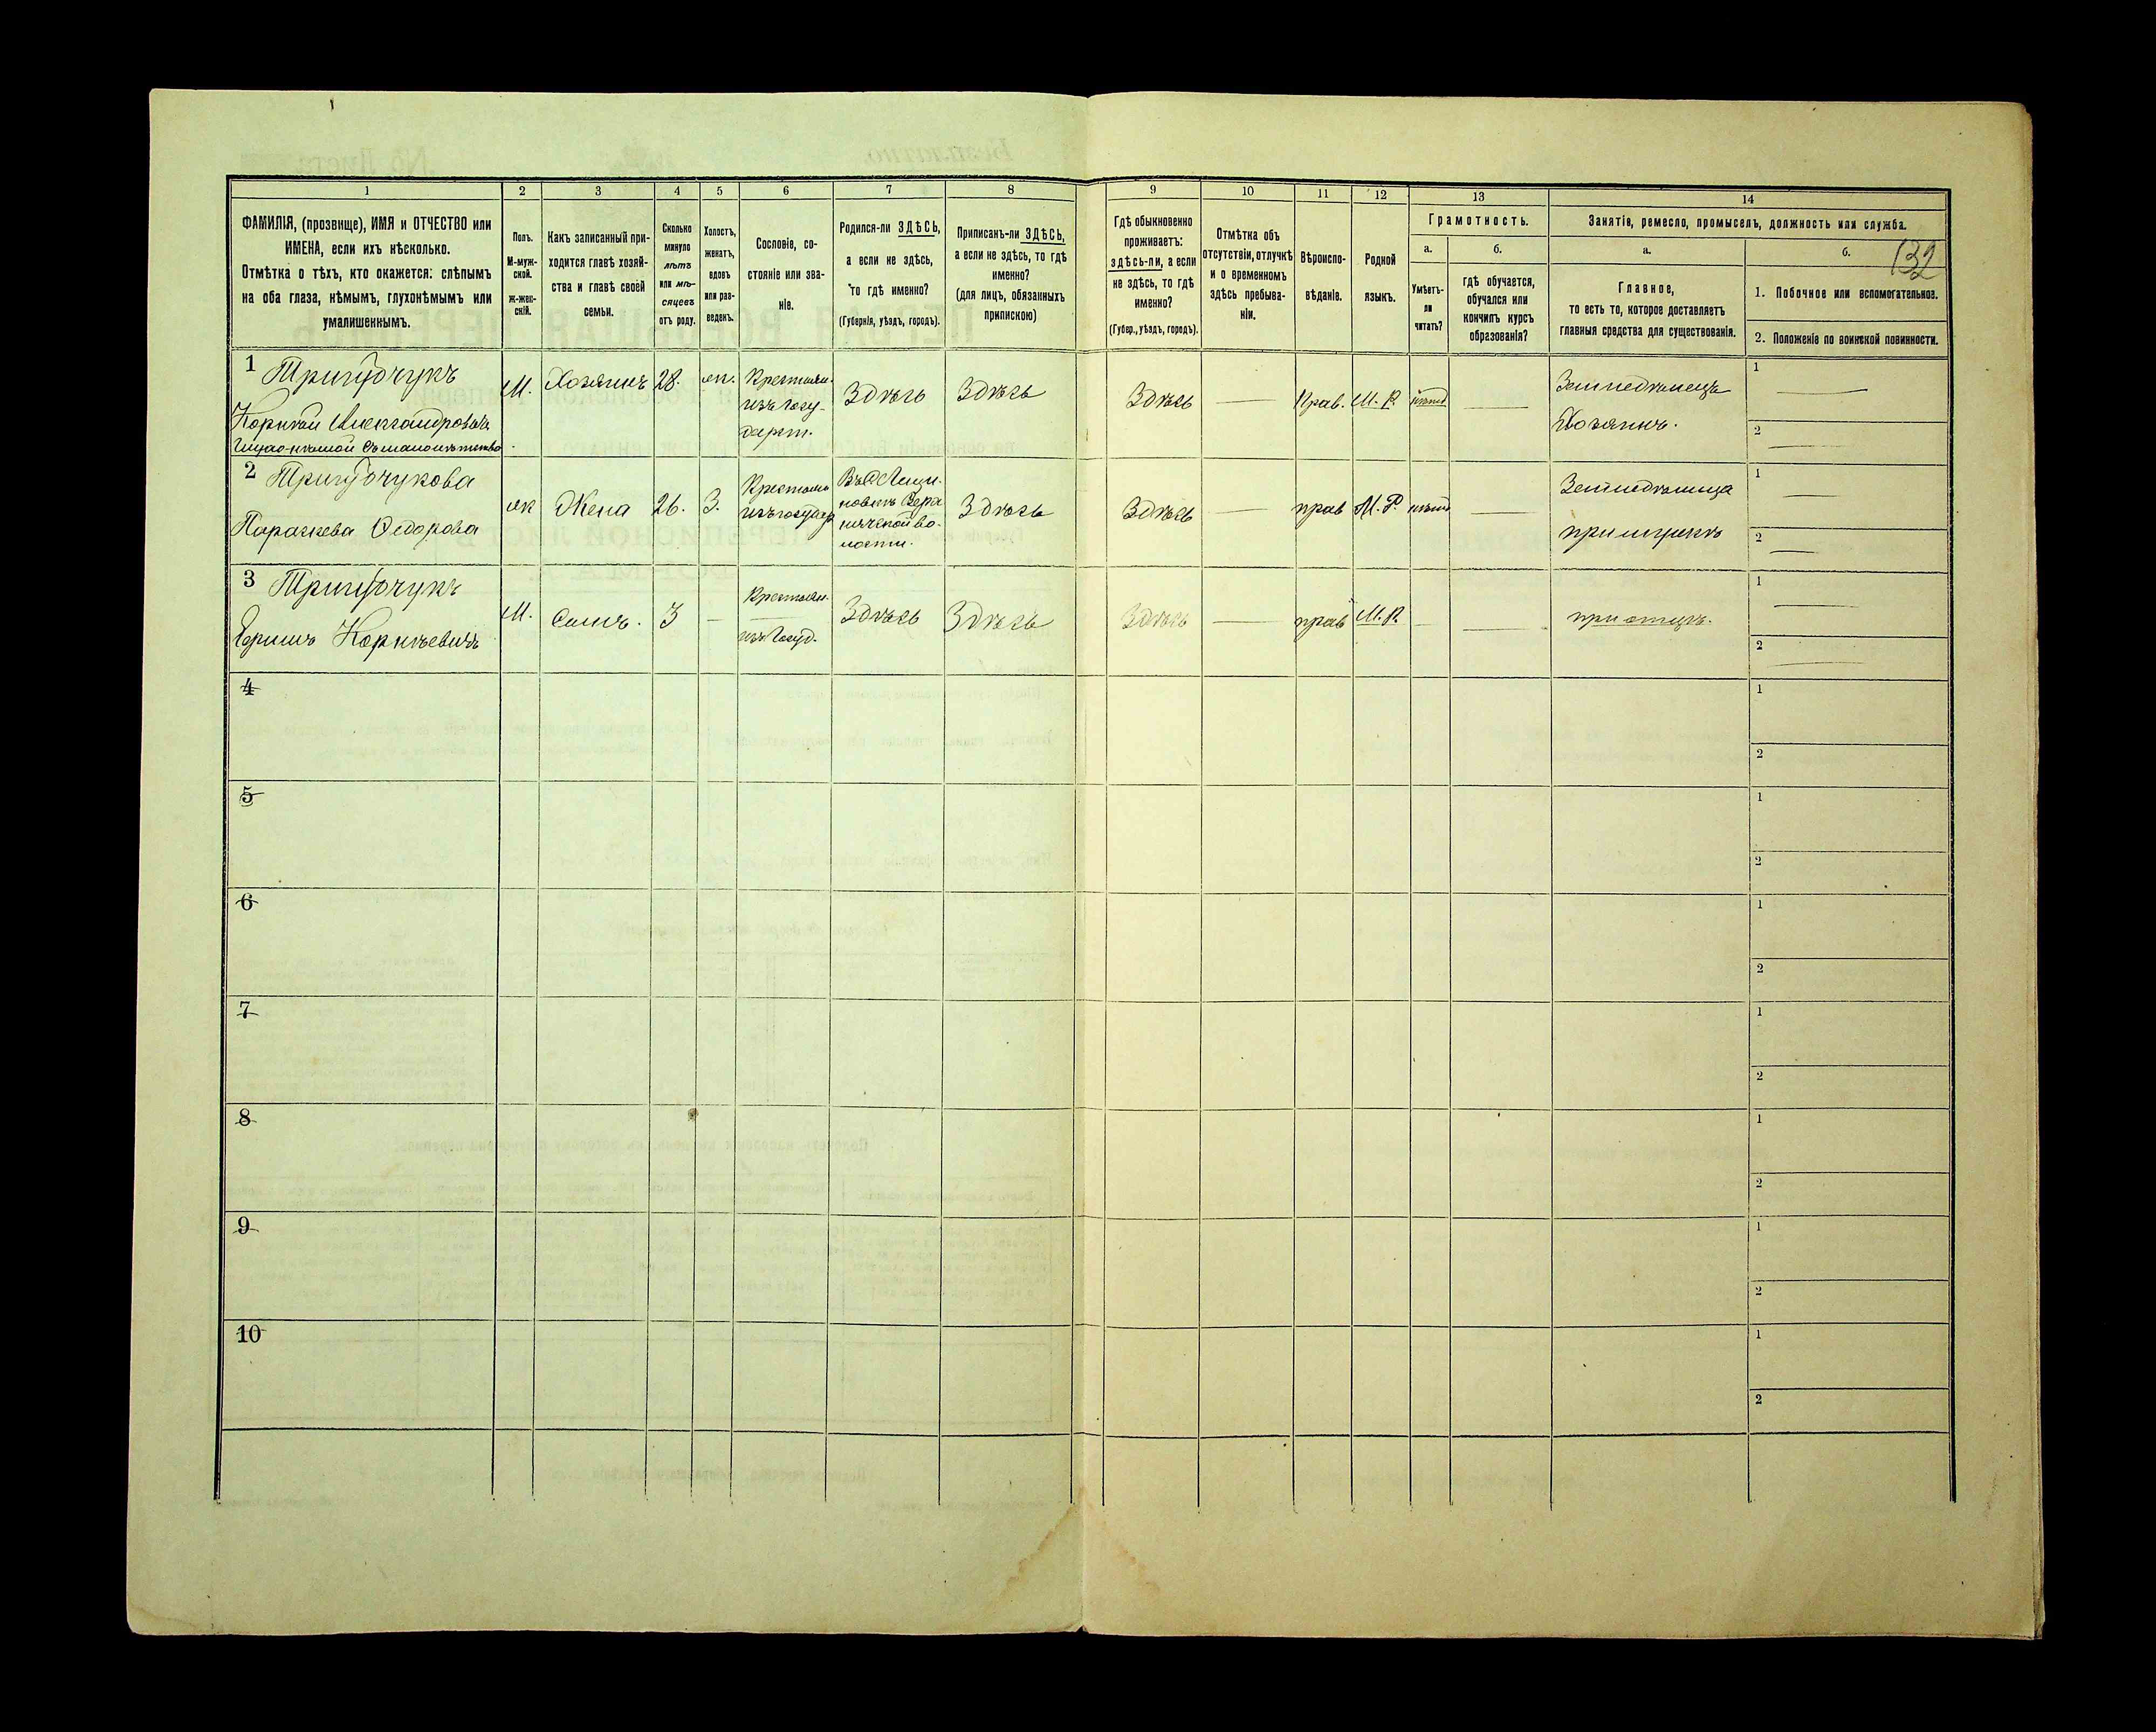 132
1
2
3
4
5
6
7
8
9
10
11
12
13
14
ФАМИЛІЯ, (прозвище), ИМЯ и ОТЧЕСТВО или
ИМЕНА, если ихъ нѣсколько.
Отмѣтка о тѣхъ, кто окажется: слѣпымъ
на оба глаза, нѣмымъ, глухонѣмымъ или
умалишеннымъ.
Полъ.
М-муж-
ской.
ж-жен-
скій.
Какъ записанный при-
ходится главѣ хозяй-
ства и главѣ своей
семьи.
Сколько
минуло
лѣтъ
или мѣ-
сяцевъ
отъ роду.
Холостъ,
женатъ,
вдовъ
или раз-
веденъ.
Сословіе, со-
стояніе или зва-
ніе.
Родился-ли ЗДѢСЬ,
а если не здѣсь,
то гдѣ именно?
(Губернія, уѣздъ, городъ).
Приписанъ-ли ЗДѢСЬ,
а если не здѣсь, то гдѣ
именно?
(для лицъ, обязанныхъ
припискою)
Гдѣ обыкновенно
проживаетъ:
здѣсь-ли, а если
не здѣсь, то гдѣ
именно?
(Губер., уѣздъ, городъ).
Отмѣтка объ
отсутствіи, отлучкѣ
и о временномъ
здѣсь пребыва-
ніи.
Вѣроиспо-
вѣданіе.
Родной
языкъ.
Грамотность.
а.
Умѣетъ-
ли
читать?
б.
гдѣ обучается,
обучался или
кончилъ курсъ
образованія?
Занятіе, ремесло, промыселъ, должность или служба.
а.
Главное,
то есть то, которое доставляетъ
главныя средства для существованія.
б.
1. Побочное или вспомогательное.
2. Положеніе по воинской повинности.
1
Тригубчукъ
Корнѣй Александровъ
М.
Хозяинъ
28.
жн.
Крестьян.
изъ госу-
дарст.
Здѣсь
Здѣсь
Здѣсь
Прав.
М. Р.
нѣтъ
Земледѣлецъ
Хозяинъ.
1
2
2
Тригубчукова
Параскева Федорова
ж
Жена
26.
З.
Крестьян
изъ государ
Здѣсь
Здѣсь
прав
М. Р.
нѣтъ
Земледѣлица
при мужѣ
1
2
3
Тригубчукъ
Корнѣевичъ
М.
Сынъ.
3
Крестьян.
изъ Госуд.
Здѣсь
Здѣсь
Здѣсь
прав
М. Р.
при отцѣ.
1
2
4
1
2
5
1
2
6
1
2
7
1
2
8
1
2
9
1
2
10
1
2